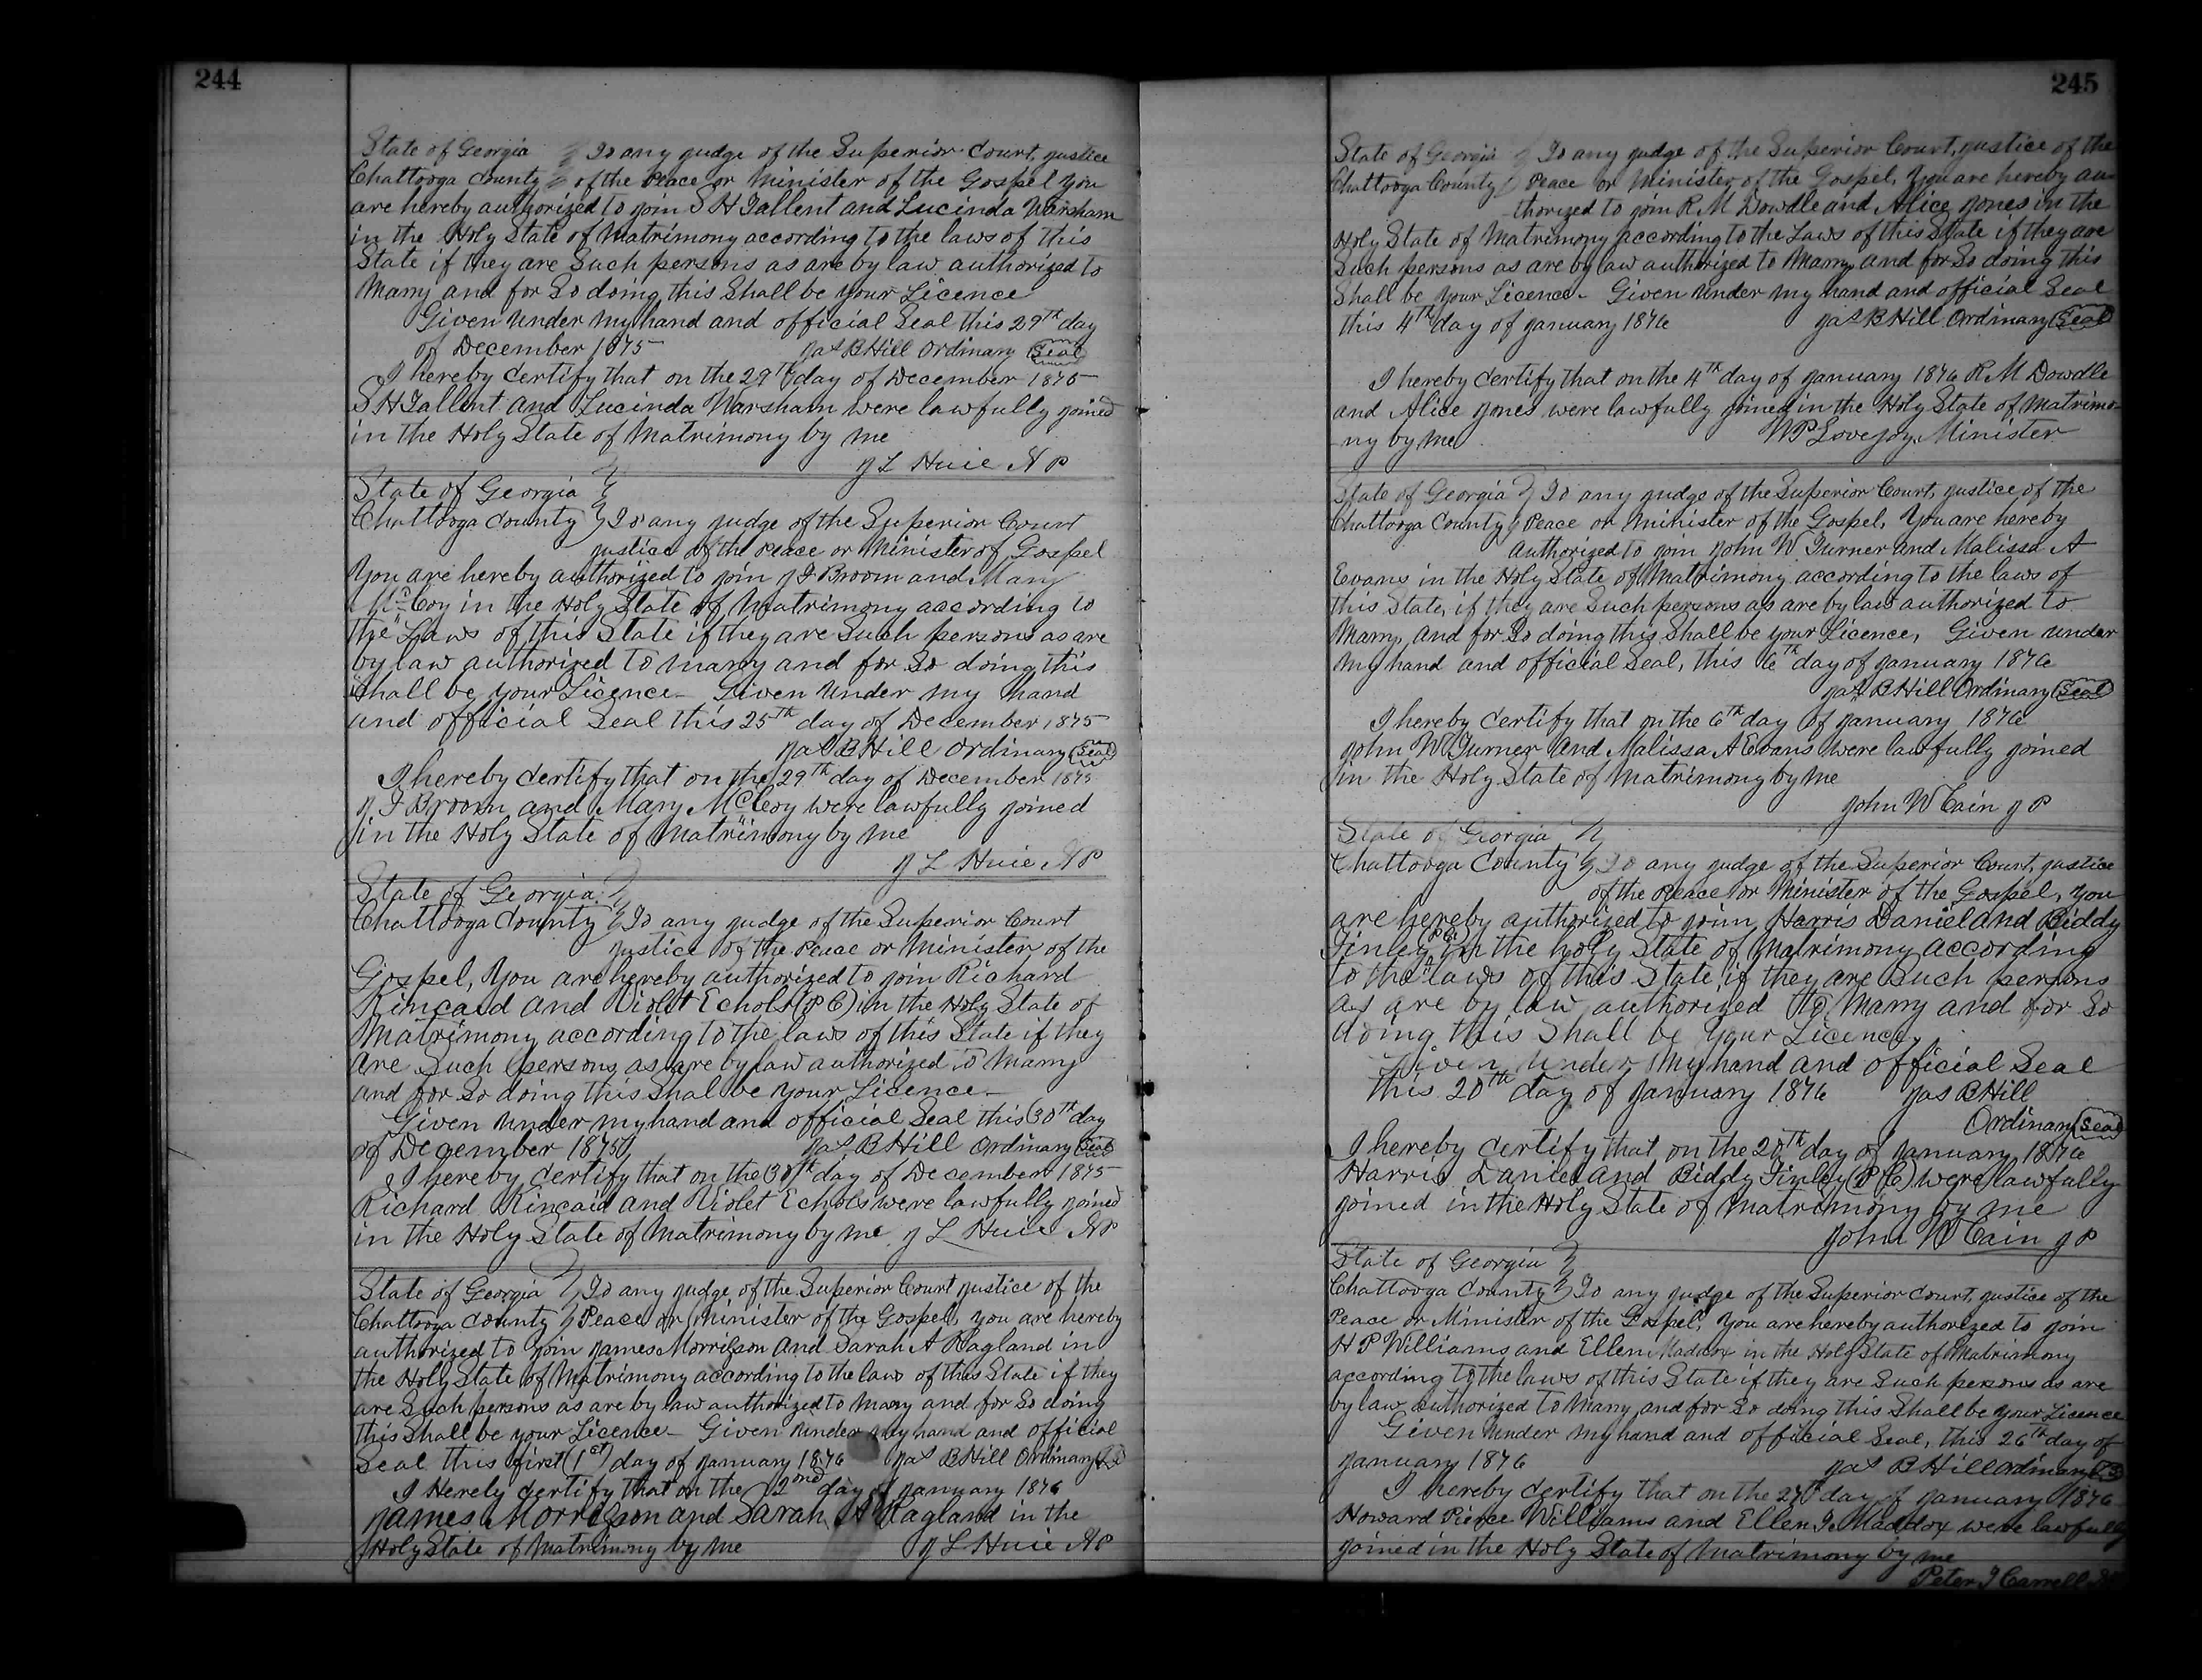 244
State of Georgia } To any judge of the Superior Court, justice
Chattooga County } of the Peace or Minister of the Gospel you
are hereby authorized to join S H Tallent and Lucinda Warsham
in the Holy State of Matrimony according to the laws of this
State if they are Such persons as are by law authorized to
Marry and for So doing this Shall be your Licence
Given under my hand and official Seal this 29th day
of December 1875 Jas B Hill Ordinary (Seal)
I hereby certify that on the 29th day of December 1875
S H Tallent and Lucinda Warsham were lawfully joined
in the Holy State of Matrimony by me
J L Huie N P
State of Georgia }
Chattooga County } To any judge of the Superior Court
justice of the Peace or Minister of Gospel
You are hereby authorized to join J F Broom and Mary
McCoy in the Holy State of Matrimony according to
the Laws of this State if they are Such persons as are
by law authorized to marry and for So doing this
Shall be your Licence Given under my hand
and official Seal this 25th day of December 1875
Jas B Hill Ordinary (Seal)
I hereby certify that on the 29th day of December 1875
J F Broom and Mary McCoy were lawfully joined
in the Holy State of Matrimony by me
J L Huie N P
State of Georgia }
Chattooga County } To any judge of the Superior Court
justice of the Peace or Minister of the
Gospel, You are hereby authorized to join Richard
Kincaid and Violet Echols (P C) in the Holy State of
Matrimony according to the laws of this State if they
are Such persons as are by law authorized to Marry
and for So doing this Shal be your Licence
Given under my hand and official Seal this 30th day
of December 1875 Jas B Hill Ordinary (Seal)
I hereby certify that on the 30th day of December 1875
Richard Kincaid and Violet Echols were lawfully joined
in the Holy State of Matrimony by me J L Huie N P
State of Georgia } To any judge of the Superior Court justice of the
Chattooga County } Peace or Minister of the Gospel, you are hereby
authorized to join James Morrison and Sarah A Ragland in
the Holy State of Matrimony according to the laws of this State if they
are Such persons as are by law authorized to Marry and for So doing
this Shall be your Licence Given under my hand and official
Seal this first (1st) day of January 1876 Jas B Hill Ordinary
I Herely certify that on the 2ond day of January 1876
James Morrison and Sarah A Ragland in the
Holy State of Matrimony by me J L Huie N P
245
State of Georgia } To any judge of the Superior Court, justice of the
Chattooga County } Peace or Minister of the Gospel, You are hereby au-
thorized to join R M Dowdle and Alice Jones in the
Holy State of Matrimony according to the Laws of this State if they are
Such persons as are by law authorized to Marry, and for So doing this
Shall be your Licence. Given under my hand and official Seal
this 4th day of January 1876 Jas B Hill Ordinary (Seal)
I hereby certify that on the 4th day of January 1876 R M Dowdle
and Alice Jones were lawfully joined in the Holy State of Matrimo-
ny by me W P Lovejoy Minister
State of Georgia } To any judge of the Superior Court, justice of the
Chattooga County } Peace or Minister of the Gospel, You are hereby
authorized to join John W Turner and Malissa A
Evans in the Holy State of Matrimony according to the laws of
this State, if they are Such persons as are by law authorized to
Marry, and for So doing this Shall be your Licence, Given under
my hand and official Seal, this 6th day of January 1876
Jas B Hill Ordinary (Seal)
I hereby certify that on the 6th day of January 1876
John W Turner and Malissa A Evans were lawfully joined
in the Holy State of Matrimony by me
John W Cain J P
State of Georgia }
Chattooga County } To any judge of the Superior Court, justice
of the Peace or Minister of the Gospel, you
are hereby authorized to joinn Harris Daniel and Biddy
Finley (P C) in the holy State of Matrimony according
to the laws of this State, if they are Such persons
as are by law authorized to Marry and for So
doing this Shall be your Licence.
Given under my hand and official Seal
this 20th day of January 1876 Jas B Hill
Ordinary (Seal)
I hereby certify that on the 20th day of January 1876
Harris Daniel and Biddy Finley (P C) were lawfully
joined in the Holy State of Matrimony by me
John W Cain J P
State of Georgia }
Chattooga County } To any judge of the Superior Court, justice of the
Peace or Minister of the Gospel, You are hereby authorized to join
H P Williams and Ellen Maddox in the Holy State of Matrimony
according to the laws of this State if they are Such persons as are
by law authorized to Marry, and for So doing this Shall be your Licence
Given under my hand and official Seal, this 26th day of
January 1876 Jas B Hill Ordinary
I hereby certify that on the 27th day of January 1876
Howard Pierce Williams and Ellen J. Maddox were lawfully
joined in the Holy State of Matrimony by me
Peter J Carrell